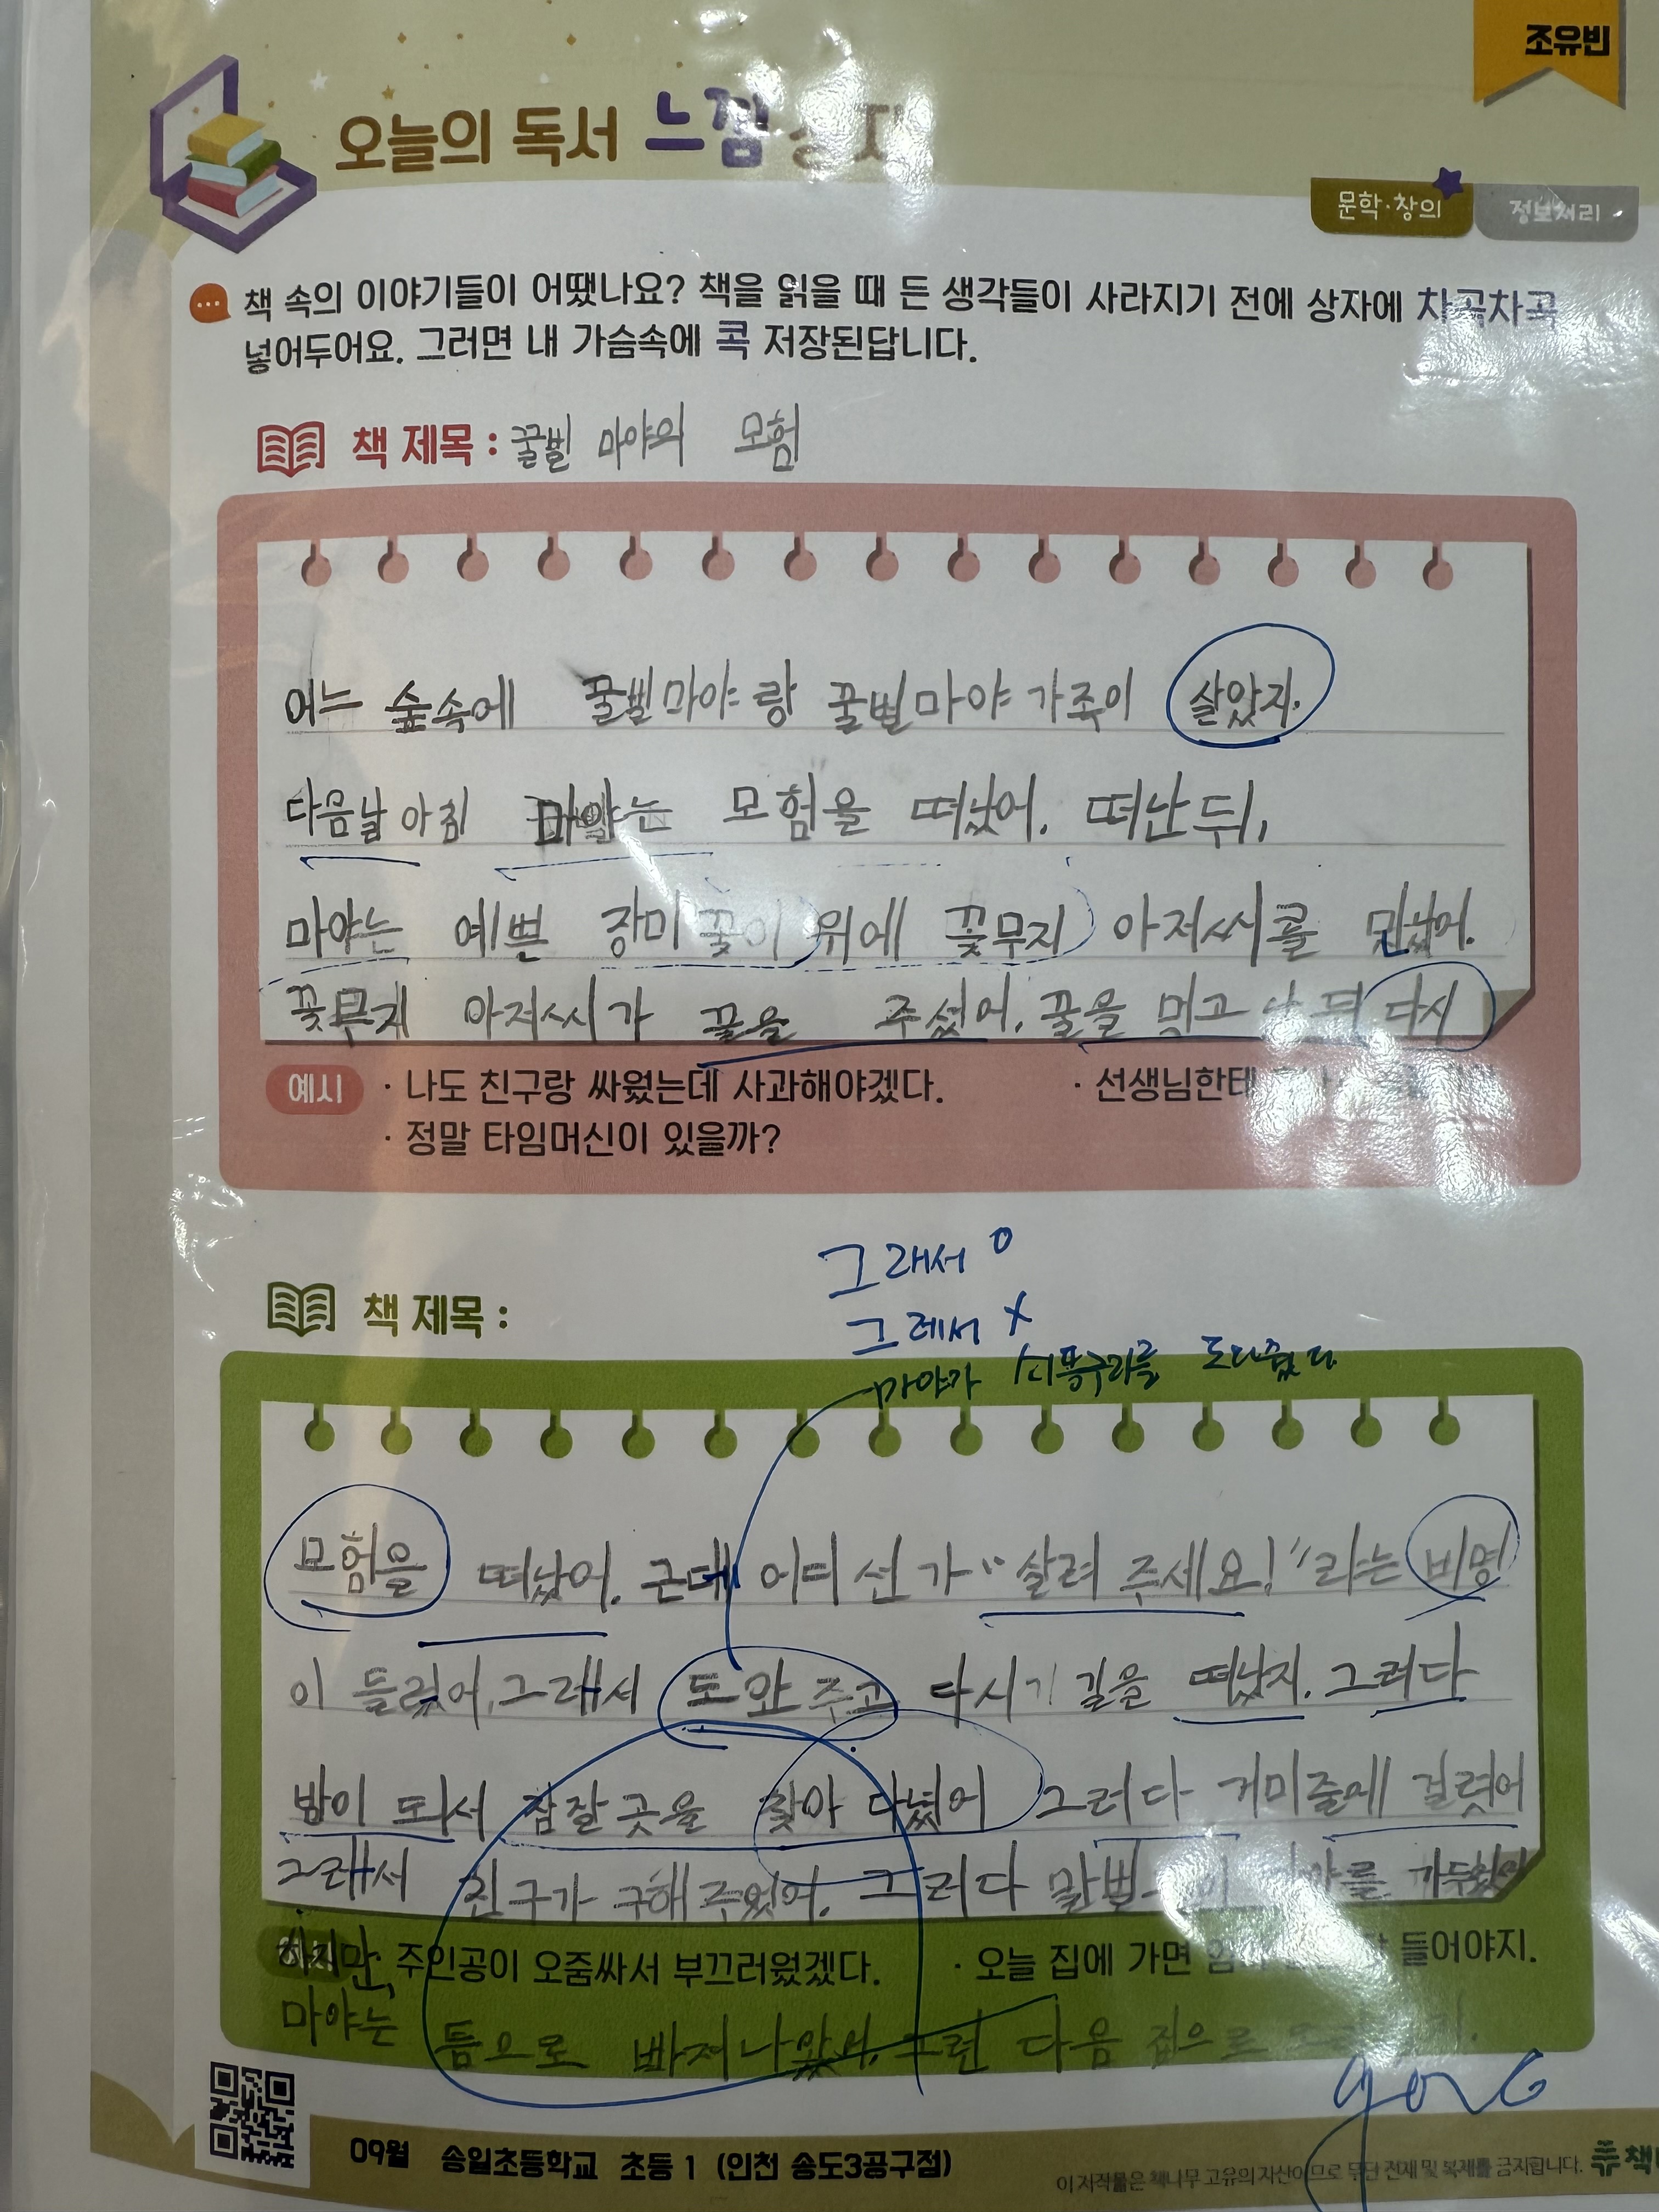 조유빈
오늘의 독서 느낌
문학·창의 정보처리
책 속의 이야기들이 어땠나요? 책을 읽을 때 든 생각들이 사라지기 전에 상자에 차곡차곡
넣어두어요. 그러면 내 가슴속에 콕 저장된답니다.
책 제목 : 꿀벌 마야의 모험
어느 숲속에 꿀벌마야랑 꿀벌마야 가족이 살았지.
다음날 아침 마야는 모험을 떠났어. 떠난 뒤,
마야는 예쁜 장미 꽃이 위에 꽃무지 아저씨를
꽃무지 아저씨가 꿀을 주셨어. 꿀을 먹고 다시
예시 · 나도 친구랑 싸웠는데 사과해야겠다. · 선생님한테
· 정말 타임머신이 있을까?
그래서 O
그레서 X
책 제목 :
마야가
모험을 떠났어. 근데 어디선가 "살려 주세요!"라는 비명
이 들렸어. 그래서 도와주고 다시 길을 떠났지. 그러다
밤이 되서 잠잘 곳을 찾아 다녔어 그러다 거미줄에 걸렸어
그래서 친구가 구해 주었어. 그러다 말벌
하지만, 주인공이 오줌싸서 부끄러웠겠다. · 오늘 집에 가면 들어야지.
마야는 틈으로 빠져나왔어. 그런 다음 집으로
09월 송일초등학교 초등 1 (인천 송도3공구점)
이 저작물은 책나무 고유의 자산이므로 무단 전재 및 복제를 금지합니다.